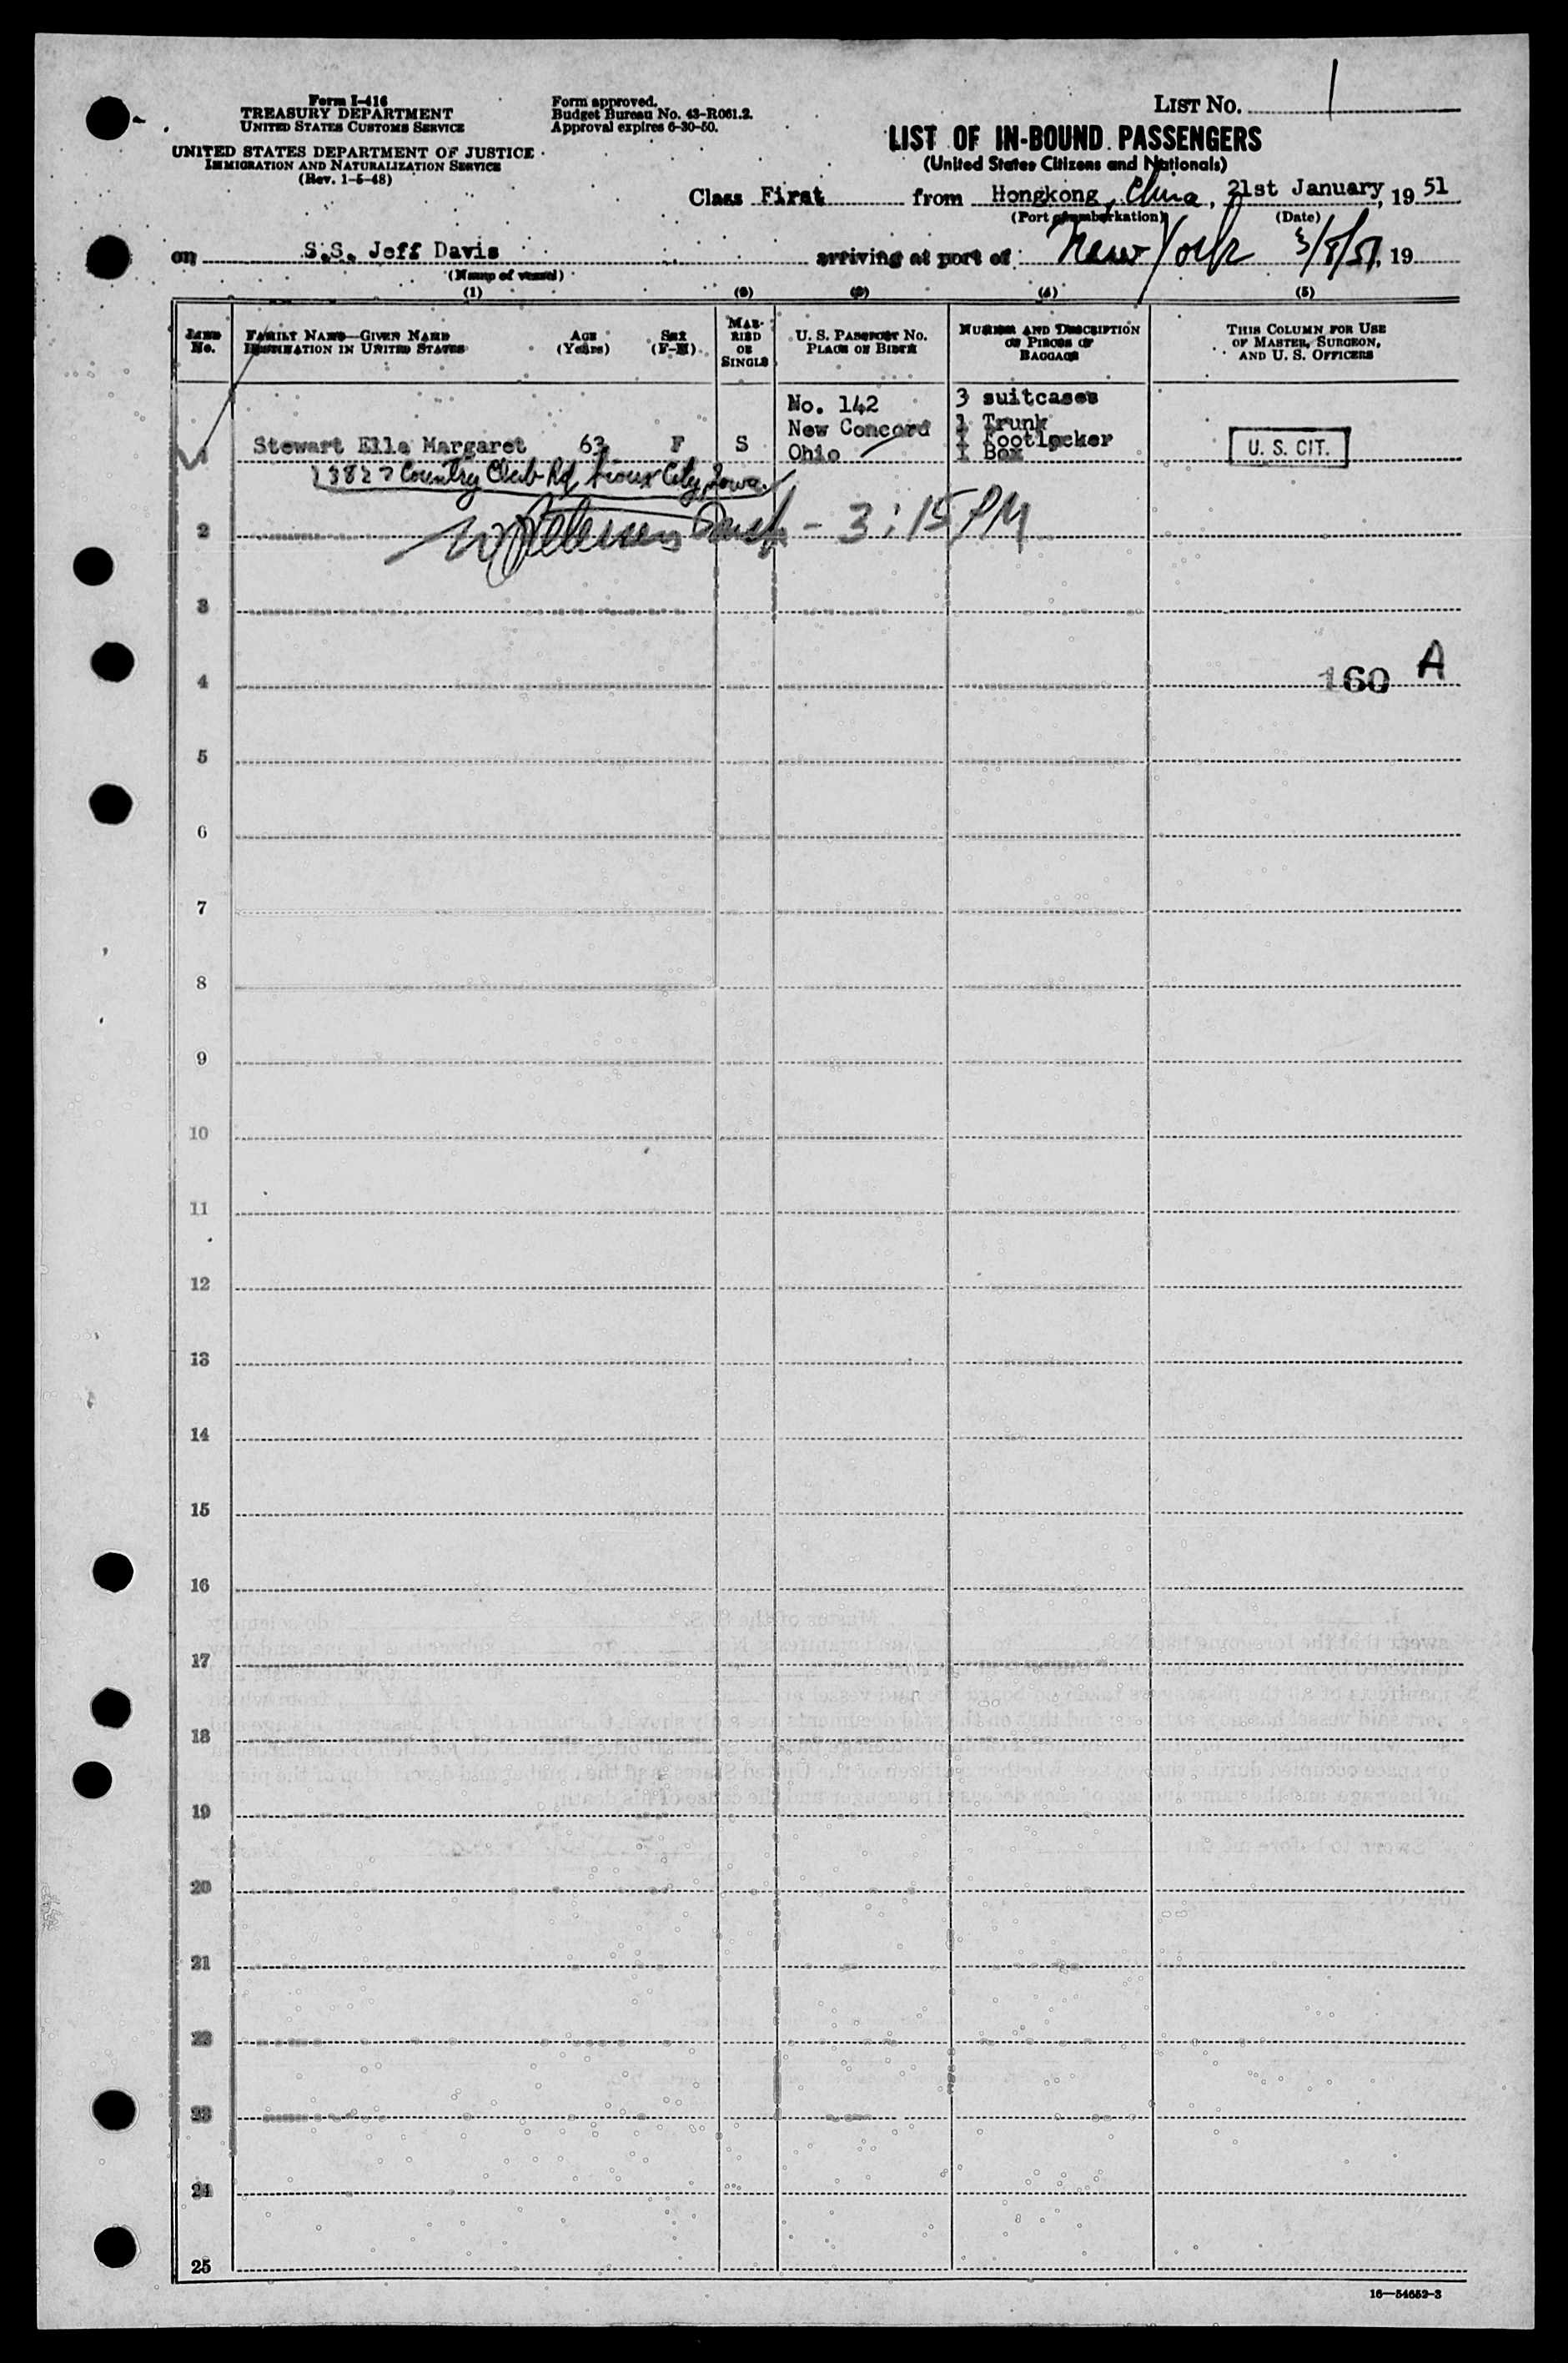 List No. 1
Form I-416
TREASURY DEPARTMENT
United States Customs Service
UNITED STATES DEPARTMENT OF JUSTICE
Immigration and Naturalization Service
(Rev. 1-5-48)
Form approved.
Budget Bureau No. 43-R061.2.
Approval expires 6-30-50.
LIST OF IN-BOUND PASSENGERS
(United States Citizens and Nationals)
Class First from Hongkong, China, 21st January, 19 51
(Port of embarkation) (Date)
on S.S. Jeff Davis arriving at port of New York 3/8/51, 19
(Name of vessel)
(1) (2) (3) (4) (5)
Line No. Family Name—Given Name Destination in United States Age (Years) Sex (F-M) Married or Single U. S. Passport No. Place of Birth Number and Description of Pieces of Baggage This Column for Use of Master, Surgeon, and U. S. Officers
No. 142 3 suitcases
New Concord 1 Trunk
1 Stewart Ella Margaret 63 F S Ohio 1 Footlocker U. S. CIT.
1 Box
3827 Country Club Rd Sioux City, Iowa.
2 - 3:15 PM
3
4 160 A
5
6
7
8
9
10
11
12
13
14
15
16
17
18
19
20
21
22
23
24
25
16—54652-3